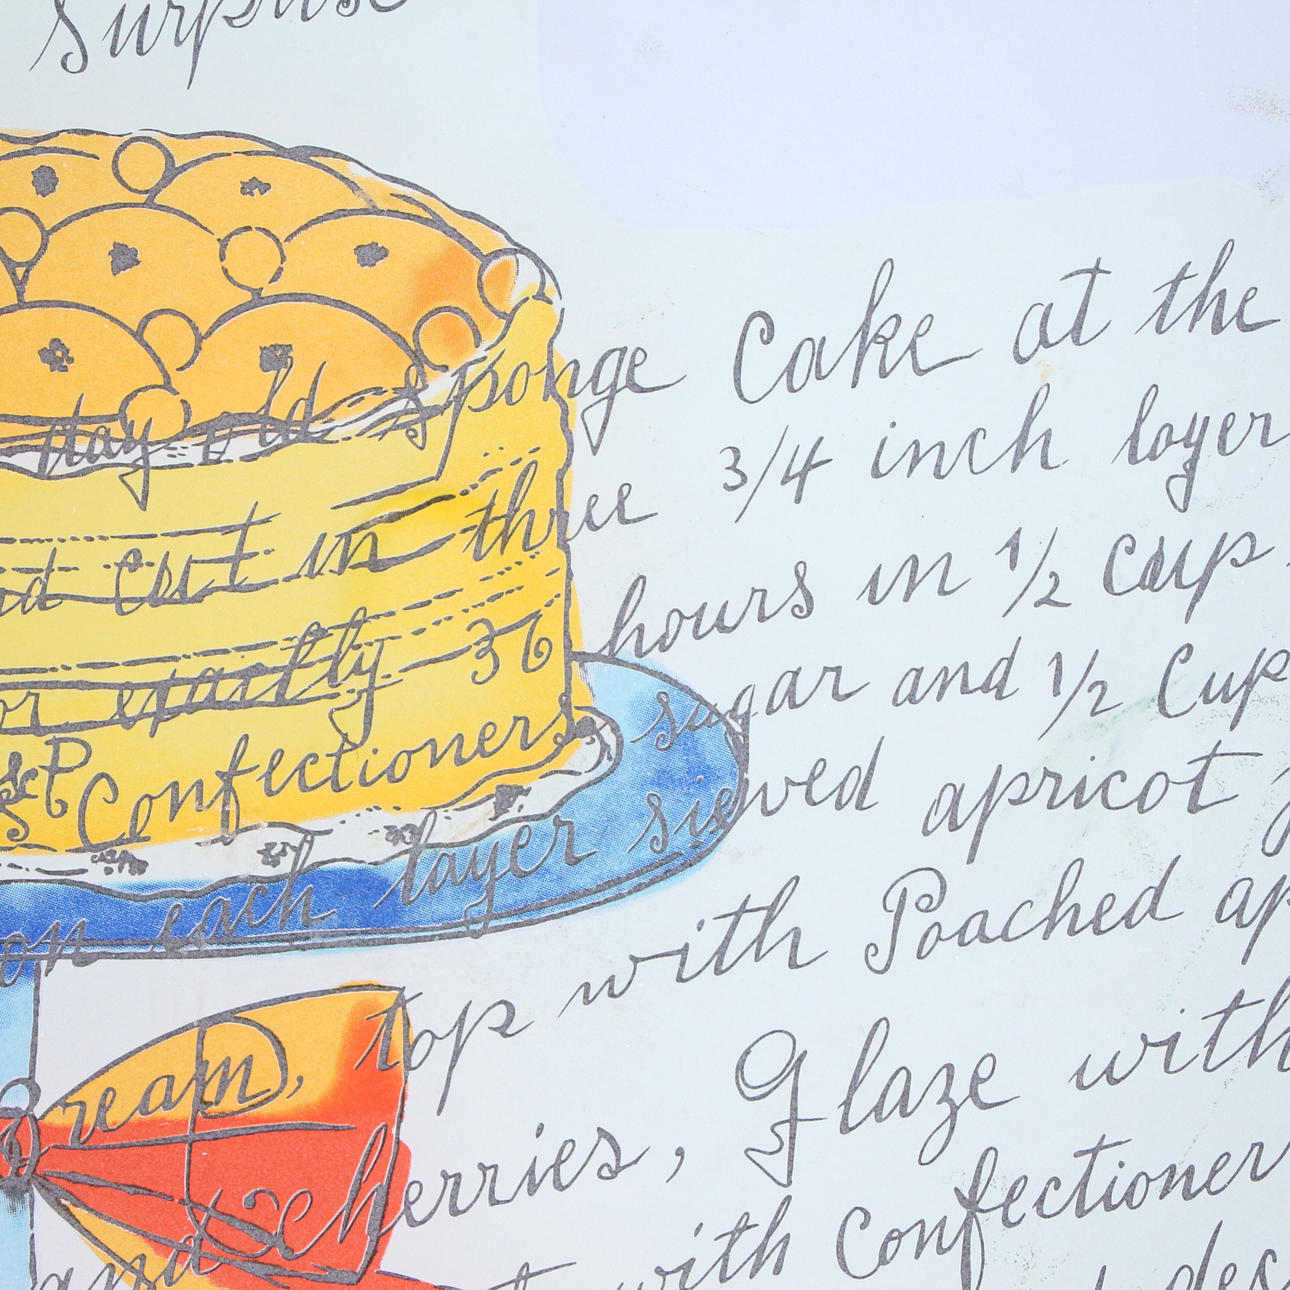 Surprise
day old Sponge Cake at the
nd cut in three 3/4 inch layer
or exactly 36 hours in 1/2 cup
Confectioners sugar and 1/2 Cup
on each layer sieved apricot
ream, top with Poached ap
and cherries, Glaze with
with Confectioner
des